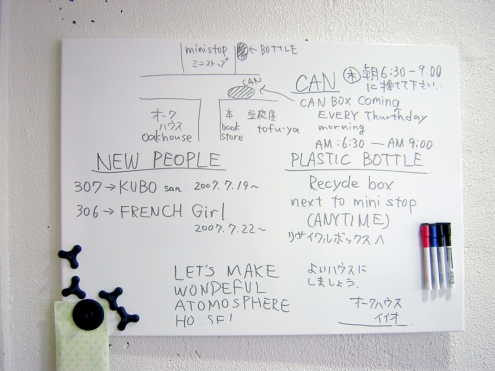 ministop
ミニストップ
← BOTTLE
CAN
オーク
ハウス
oakhouse
本
book
store
豆腐屋
tofu-ya
CAN
木 朝6:30-9:00
に捨てて下さい..
CAN BOX Coming
EVERY Thurthday
morning
AM:6:30 — AM 9:00
NEW PEOPLE
307 → KUBO san 2007.7.19~
306 → FRENCH Girl
2007.7.22~
PLASTIC BOTTLE
Recycle box
next to mini stop
(ANYTIME)
リサイクルボックスへ
LET'S MAKE
WONDEFUL
ATOMOSPHERE
よいハウスに
しましょう.
オークハウス